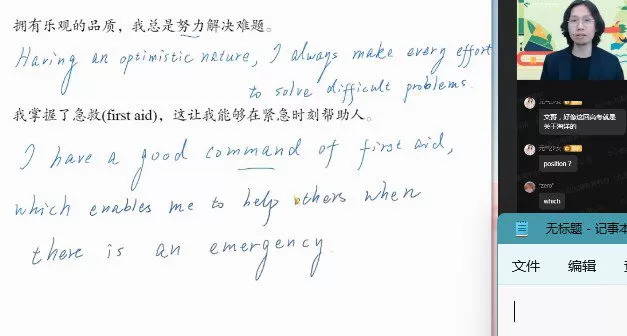 拥有乐观的品质，我总是努力解决难题。
Having an optimistic nature, I always make every effort
to solve difficult problems.
我掌握了急救(first aid)，这让我能够在紧急时刻帮助人。
I have a good command of first aid,
which enables me to help others when
there is an emergency.
文哥，好像这回高考就是
关于海洋的
position？
"zero"
which
无标题 - 记事本
文件 编辑